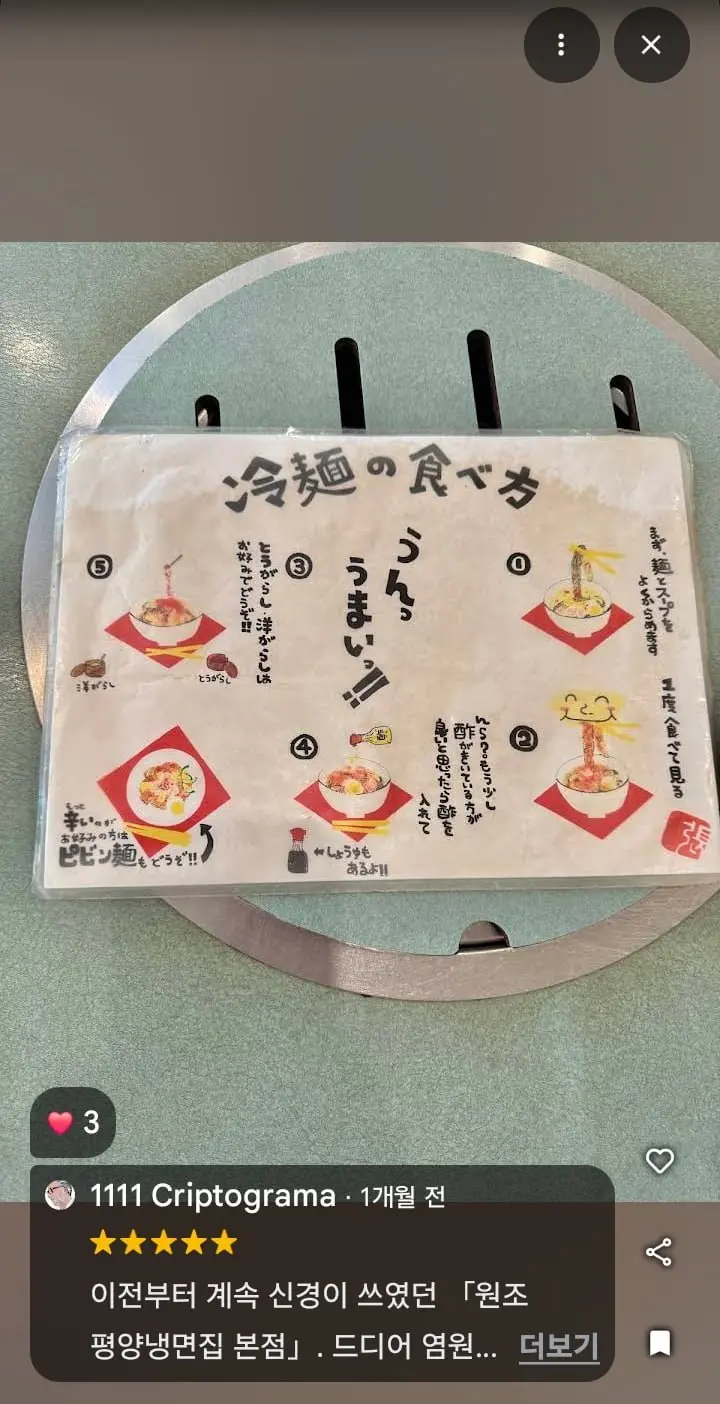 冷麺の食べ方
①
まず、麺とスープを
よくからめます
②
1度食べて見る
③
うんっ
うまいっ!!
④
んら?もう少し
酢がきいている方が
良いと思ったら酢を
入れて
←しょうゆも
あるよ!!
⑤
とうがらし・洋がらしは
お好みでどうぞ!!
洋がらし
とうがらし
もっと
辛いのが
お好みの方は
ピビン麺もどうぞ!!
3
1111 Criptograma · 1개월 전
이전부터 계속 신경이 쓰였던 「원조
평양냉면집 본점」. 드디어 염원... 더보기